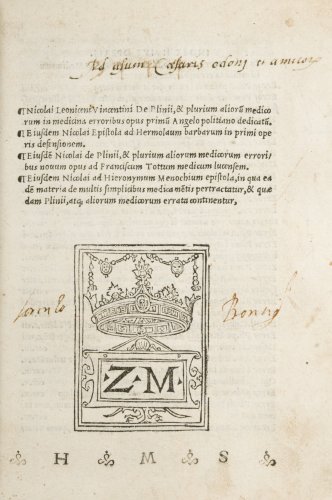 Ad usum Cæsaris odonj et amicor
¶Nicolai Leoniceni Vincentini De Plinii, & plurium aliorũ medico
rum in medicina erroribus opus primũ Angelo politiano dedicatũ.
¶Eiusdem Nicolai Epistola ad Hermolaum barbarum in primi ope
ris defensionem.
¶Eiusdẽ Nicolai de Plinii, & plurium aliorum medicorum errori
bus nouum opus ad Franciscum Tottum medicum lucensem.
¶Eiusdem Nicolai ad Hieronymum Menochium epistola, in qua ea
dẽ materia de multis simplicibus medicamẽtis pertractatur, & quæ
dam Plinii, atq; aliorum medicorum errata continentur,
Z·M·
H M S